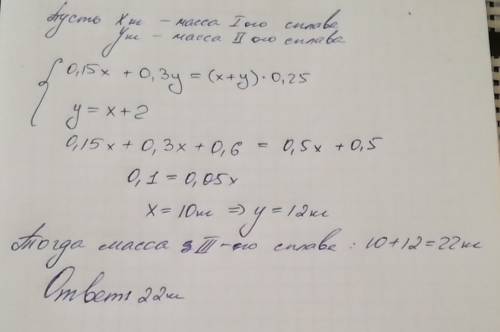 Пусть x кг - масса I ого сплава
y кг - масса II ого сплава
{ 0,15x + 0,3y = (x+y)·0,25
y = x+2
0,15x + 0,3x + 0,6 = 0,5x + 0,5
0,1 = 0,05x
x = 10 кг ⇒ y = 12 кг
Тогда масса III-ого сплава : 10+12=22 кг
Ответ: 22 кг